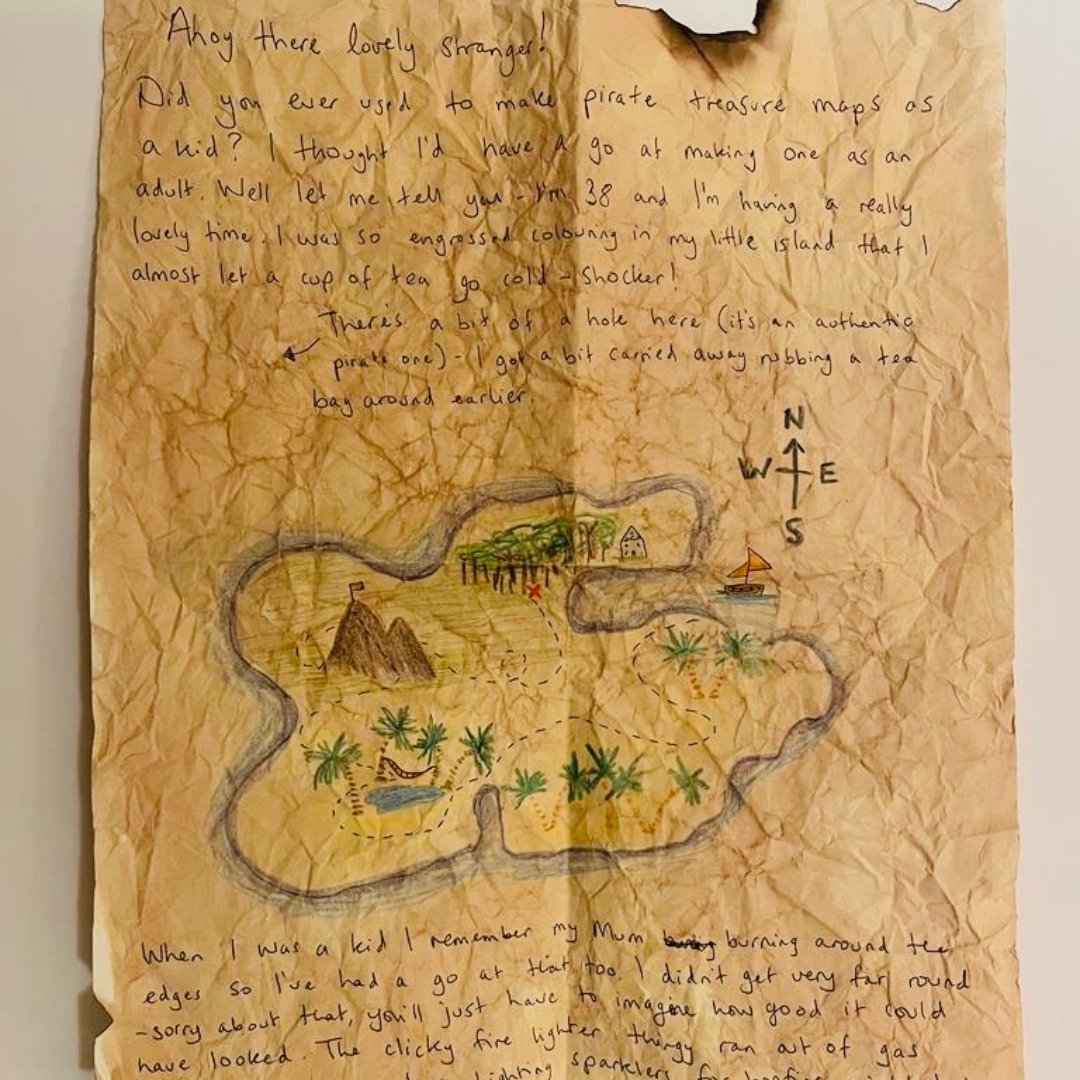 Ahoy there lovely stranger!
Did you ever used to make pirate treasure maps as
a kid? I thought I'd have a go at making one as an
adult. Well let me tell you - I'm 38 and I'm having a really
lovely time. I was so engrossed colouring in my little island that I
almost let a cup of tea go cold - shocker!
There's a bit of a hole here (it's an authentic
pirate one) - I got a bit carried away rubbing a tea
bag around earlier.
N
W E
S
When I was a kid I remember my Mum burning around the
edges so I've had a go at that too. I didn't get very far round
- sorry about that, you'll just have to imagine how good it could
have looked. The clicky fire lighter thingy ran out of gas
lighting sparklers for